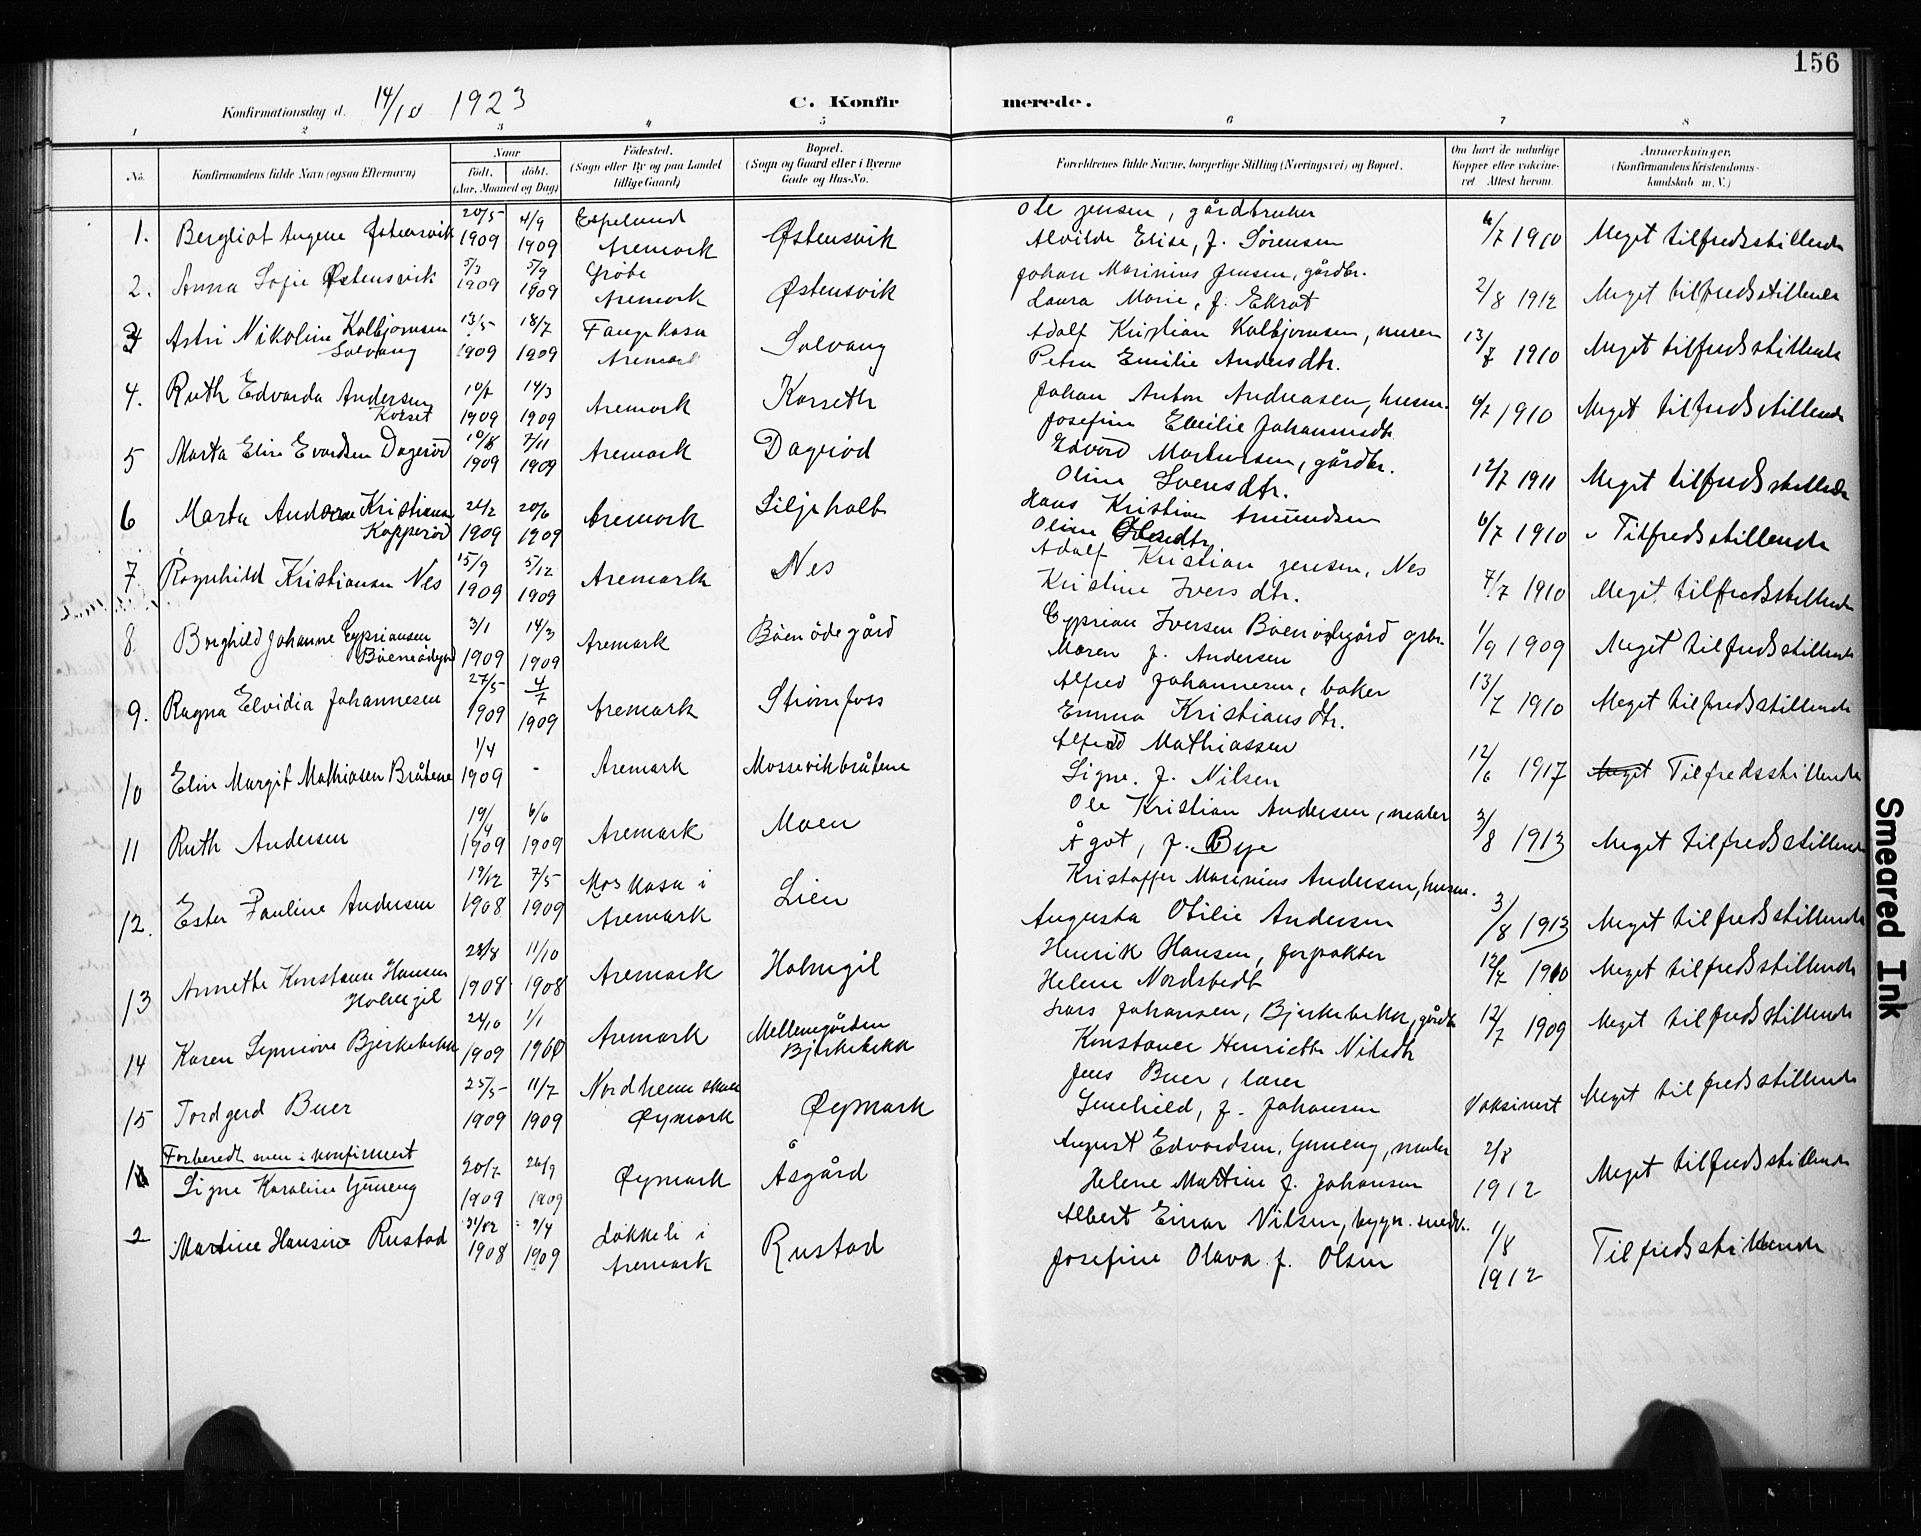 156
Konfirmationsdag d. 14/10 1923 C. Konfirmerede.
1 2 3 4 5 6 7 8
No. Konfirmandens fulde Navn (ogsaa Efternavn) Naar født. døbt. (Aar, Maaned og Dag) Fødested. (Sogn eller By og paa Landet tillige Gaard) Bopæl. (Sogn og Gaard eller i Byerne Gade og Hus-No. Forældrenes fulde Navne, borgerlige Stilling (Næringsvei) og Bopæl. Om havt de naturlige Kopper eller vaccineret Attest herom. Anmærkninger. (Konfirmandens Kristendomskundskab m. V.)
1. Bergliot Østensvik 20/5 1909 4/9 1909 Espelund Aremark Østensvik Ole Jensen, gårdbruker
Alvilde Elise, f. Sørensen 6/7 1910 Meget tilfredsstillende
2. Anna Sofie Østensvik 5/3 1909 5/9 1909 Aremark Østensvik Johan Marinius Jensen, gårdbr.
Laura Marie, f. Ekrat 2/8 1912 Meget tilfredsstillende
3 Astri Nikoline Kolbjørnsen Solvang 13/5 1909 18/7 1909 Fangekasa Aremark Solvang Adolf Kristian Kolbjørnsen, murer
Petra Emilie Andersdtr. 13/7 1910 Meget tilfredsstillende
4. Ruth Edvarda Andersen Korset 1909 14/3 1909 Aremark Korseth Johan Anton Andreasen, husm.
Josefine Emilie Johannesdtr. 6/7 1910 Meget tilfredsstillende
5 Marta Elise Evardsen Dagerød 10/8 1909 7/11 1909 Aremark Dagrød Edvard Martinsen, gårdbr.
Oline Svensdtr. 12/7 1911 Meget tilfredsstillende
6 Marta Kristiane Kopperød 24/2 1909 20/6 1909 Aremark Liljeholt Hans Kristian Amundsen
Oline Olesdtr. 6/7 1910 Tilfredsstillende
7. Ragnhild Kristiansen Nes 15/9 1909 5/12 1909 Aremark Nes Adolf Kristian Jensen, Nes
Kristine Iversdtr. 7/7 1910 Meget tilfredsstillende
8. Borghild Johanne Cypriansen Bøenødegård 3/1 1909 14/3 1909 Aremark Bøenødegård Cyprian Iversen Bøenødegård grbr.
Maren f. Andersen 1/9 1909 Meget tilfredsstillende
9. Ragna Elvidia Johannesen 27/5 1909 4/7 1909 Aremark Strømfoss Alfred Johannesen, baker
Emma Kristiansdtr. 13/7 1910 Meget tilfredsstillende
10 Elin Margit Mathiasen Bråtene 1/4 1909 - Aremark Mossevikbråtene Alfred Mathiassen
Signe. f. Nilsen 12/6 1917 Meget Tilfredsstillende
11 Ruth Andersen 19/4 1909 6/6 1909 Aremark Moen Ole Kristian Andersen, maler
Ågot, f. Bye 3/8 1913 Meget tilfredsstillende
12. Ester Pauline Andersen 19/12 1908 7/5 1909 Moskasa i Aremark Lien Kristoffer Marinius Andersen, husm.
Augusta Otilie Andersen 3/8 1913 Meget tilfredsstillende
13 Annette Konstanse Hansen Holmgil 28/8 1908 11/10 1908 Aremark Holmgil Henrik Hansen, forpakter
Helene Nordstedt 12/7 1910 Meget tilfredsstillende
14 Karen Synnøve Bjerkebekk 24/10 1909 1/1 Aremark Mellemgården Bjerkebekk Lars Johansen, Bjerkebekk, gårdbr
Konstance Henriette Nilsdtr 12/7 1909 Meget tilfredsstillende
15 Tordgerd Buer 25/5 1909 11/7 1909 Nordheim skole Øymark Øymark Jens Buer, lærer
f. Johansen Vaksinert Meget tilfredsstillende
Forberedt men i konfirmert
1 Signe Karoline Gjuneng 20/7 1909 26/9 1909 Øymark Åsgård August Edvardsen, Gjuneng, maler
Helene Martine f. Johansen 2/8 1912 Meget tilfredsstillende
2 Martine Hansine Rustad 31/12 1908 9/4 1909 Løkkeli i Aremark Rustad Albert Einar Nilsen, bygn. snedk.
Josefine Olava f. Olsen 1/8 1912 Tilfredsstillende
Smeared Ink